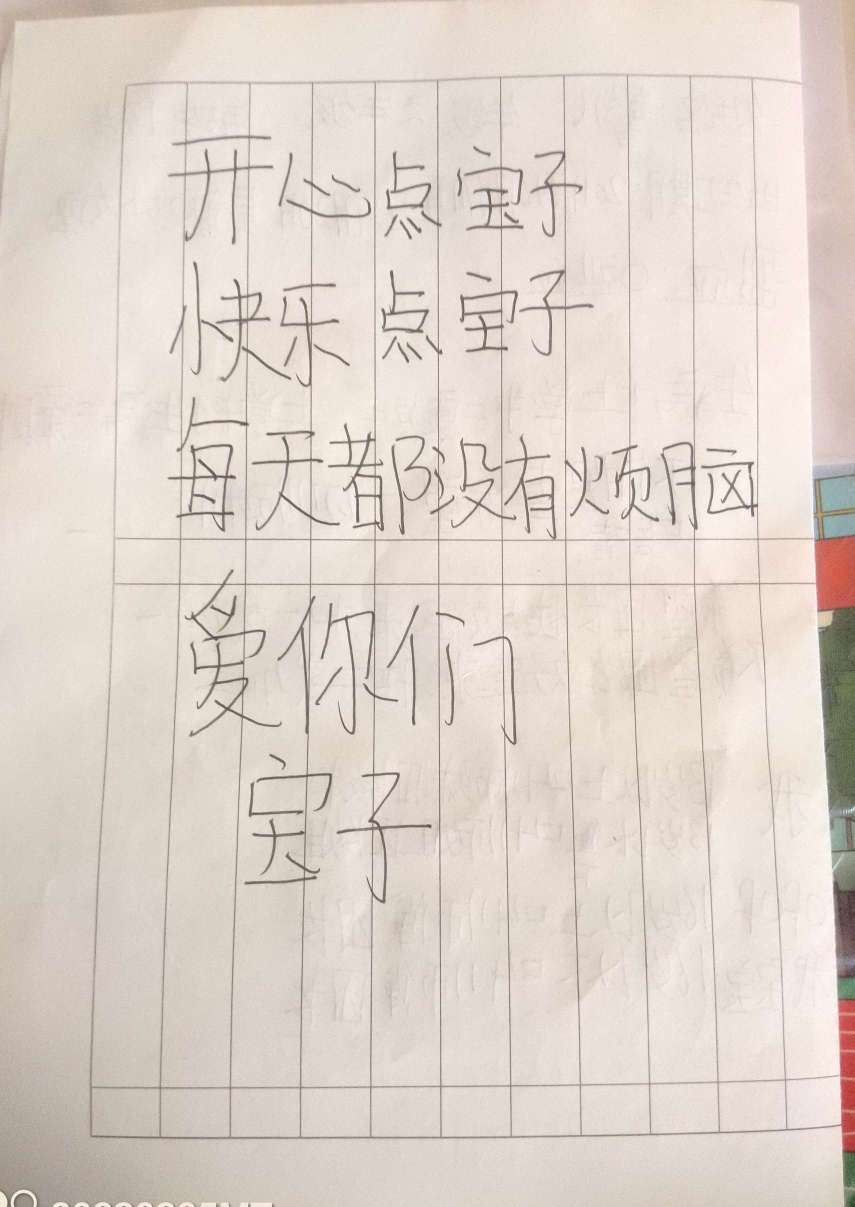 开心点宝子
快乐点宝子
每天都没有烦脑
爱你们
宝子